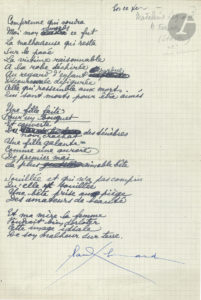 Comprenne qui voudra
Moi mon remords ce fut
La malheureuse qui resta
Sur le pavé
La victime raisonnable
A la robe déchirée
Au regard d'enfant
Découronnée défigurée
Celle qui ressemble aux morts
Qui sont morts pour être aimés
Une fille faite
Pour un bouquet
Et couverte
Du noir crachat des ténèbres
Une fille galante
Comme une aurore
De premier mai
La plus aimable bête
Souillée et qui n'a pas compris
Qu'elle est souillée
Une bête prise au piège
Des amateurs de beauté
Et ma mère la femme
Voudrait bien dorloter
Cette image idéale
De son malheur sur terre.